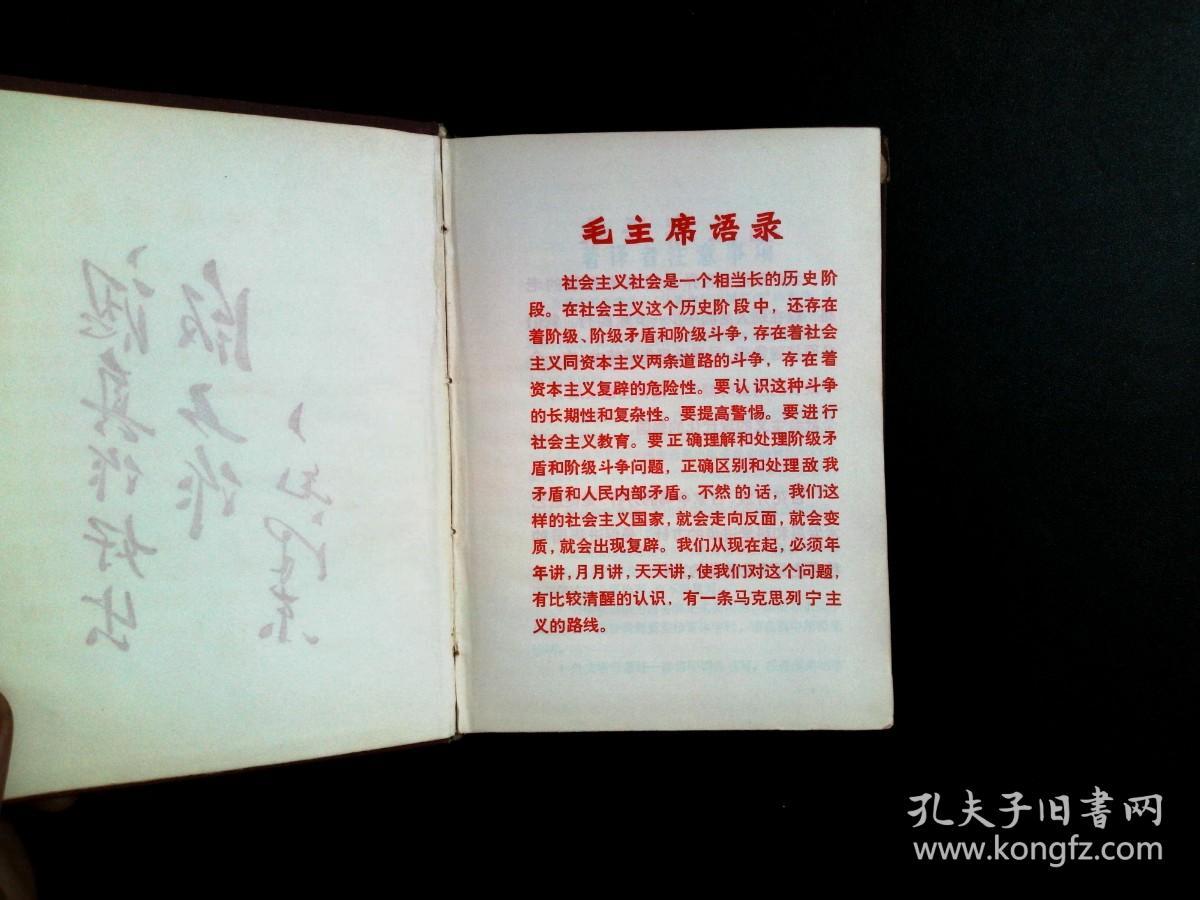 毛主席语录
社会主义社会是一个相当长的历史阶
段。在社会主义这个历史阶段中，还存在
着阶级、阶级矛盾和阶级斗争，存在着社会
主义同资本主义两条道路的斗争，存在着
资本主义复辟的危险性。要认识这种斗争
的长期性和复杂性。要提高警惕。要进行
社会主义教育。要正确理解和处理阶级矛
盾和阶级斗争问题，正确区别和处理敌我
矛盾和人民内部矛盾。不然的话，我们这
样的社会主义国家，就会走向反面，就会变
质，就会出现复辟。我们从现在起，必须年
年讲，月月讲，天天讲，使我们对这个问题，
有比较清醒的认识，有一条马克思列宁主
义的路线。
孔夫子旧书网
www.kongfz.com